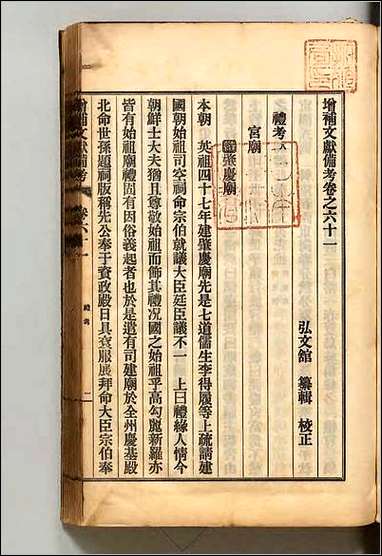 增補文獻備考卷之六十一
弘文館 纂輯 校正
禮考八
宮廟
補肇慶廟
本朝 英祖四十七年建肇慶廟先是七道儒生李得履等上疏請建
國朝始祖司空祠命宗伯就議大臣廷臣議不一 上曰禮緣人情今
朝鮮士大夫猶且尊敬始祖而飾其禮況國之始祖乎高勾麗新羅亦
皆有始祖廟禮固有因俗義起者也於是遣有司建廟於全州慶基殿
北命世孫題祠版稱先公奉于資政殿日具袞服展拜命大臣宗伯奉
增補文獻備考 卷六十一 禮考 一